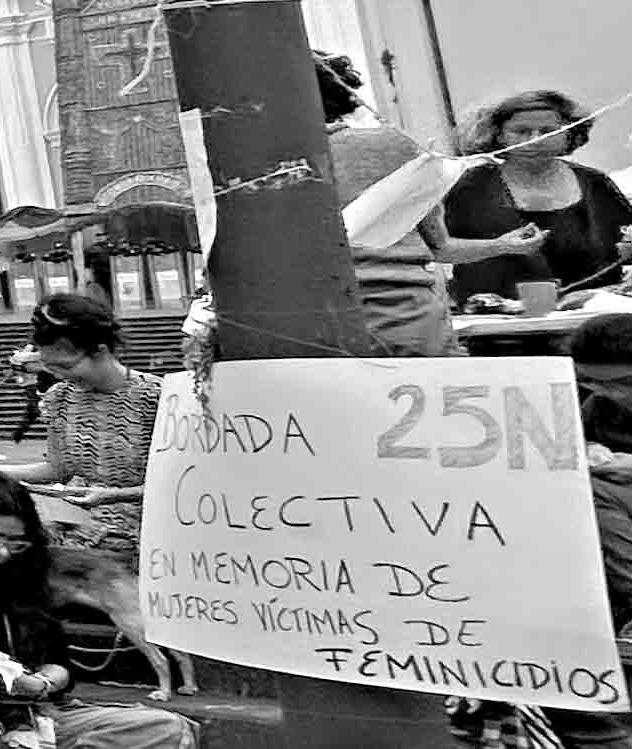 BORDADA 25N
COLECTIVA
EN MEMORIA DE
MUJERES VÍCTIMAS DE
FEMINICIDIOS